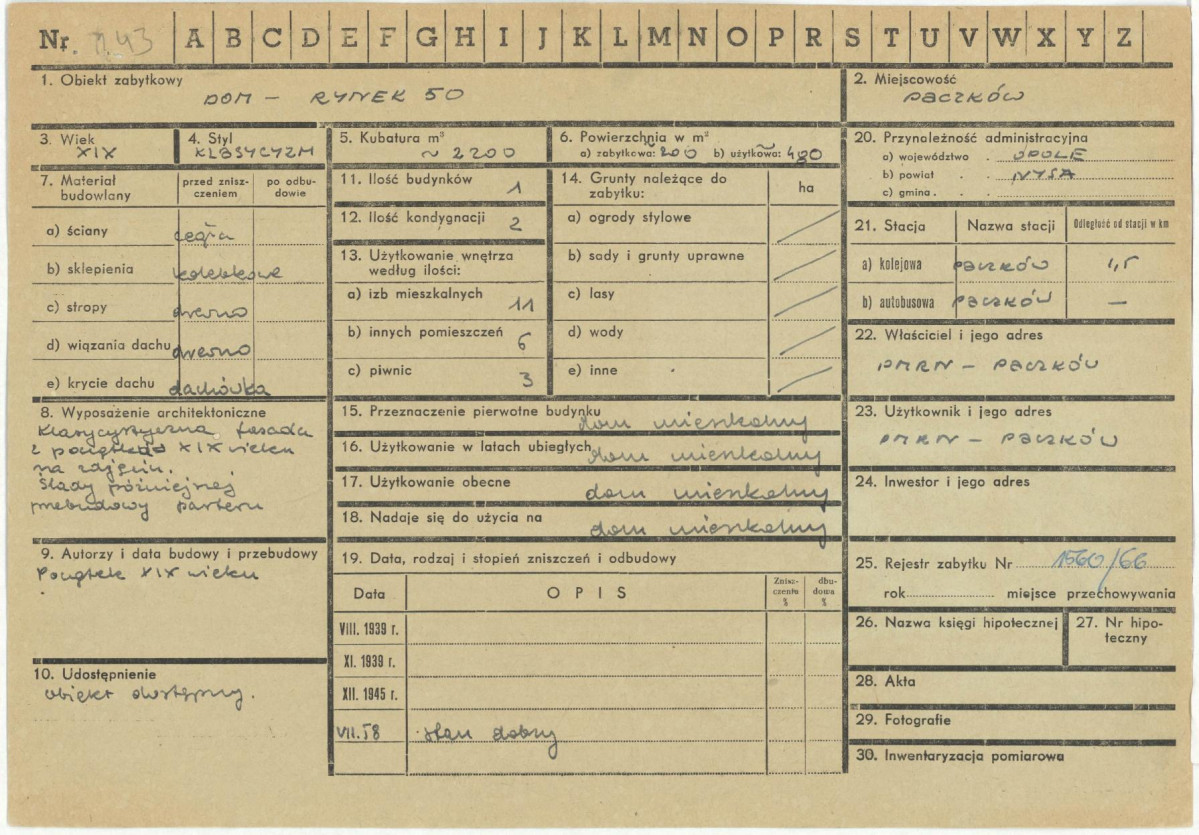 Nr. A B C D E F G H I J K L M N O P R S T U V W X Y Z
1. Obiekt zabytkowy
DOM - RYNEK 50
2. Miejscowość
PACZKÓW
3. Wiek
XIX
4. Styl
KLASYCYZM
5. Kubatura m³
~ 2200
6. Powierzchnia w m²
a) zabytkowa: 200 b) użytkowa: 400
7. Materiał budowlany
przed znisz-
czeniem
po odbu-
dowie
a) ściany cegła
b) sklepienia kolebkowe
c) stropy drewno
d) wiązania dachu drewno
e) krycie dachu dachówka
8. Wyposażenie architektoniczne
Klasycystyczna fasada
z początku XIX wieku
na zdjęciu.
Ślady późniejszej
przebudowy parteru
9. Autorzy i data budowy i przebudowy
Początek XIX wieku
10. Udostępnienie
obiekt dostępny.
11. Ilość budynków 1
12. Ilość kondygnacji 2
13. Użytkowanie wnętrza
według ilości:
a) izb mieszkalnych 11
b) innych pomieszczeń 6
c) piwnic 3
14. Grunty należące do
zabytku:
ha
a) ogrody stylowe
b) sady i grunty uprawne
c) lasy
d) wody
e) inne
15. Przeznaczenie pierwotne budynku dom mieszkalny
16. Użytkowanie w latach ubiegłych dom mieszkalny
17. Użytkowanie obecne dom mieszkalny
18. Nadaje się do użycia na dom mieszkalny
19. Data, rodzaj i stopień zniszczeń i odbudowy
Data
OPIS
Znisz-
czenia
%
dbu-
dowa
%
VIII. 1939 r.
XI. 1939 r.
XII. 1945 r.
VII. 58 stan dobry
20. Przynależność administracyjna
a) województwo . OPOLE
b) powiat . . NYSA
c) gmina . . .
21. Stacja
Nazwa stacji
Odległość od stacji w km
a) kolejowa PACZKÓW 1,5
b) autobusowa PACZKÓW —
22. Właściciel i jego adres
PMRN - PACZKÓW
23. Użytkownik i jego adres
PMRN - PACZKÓW
24. Inwestor i jego adres
25. Rejestr zabytku Nr 1560/66
rok miejsce przechowywania
26. Nazwa księgi hipotecznej
27. Nr hipo-
teczny
28. Akta
29. Fotografie
30. Inwentaryzacja pomiarowa